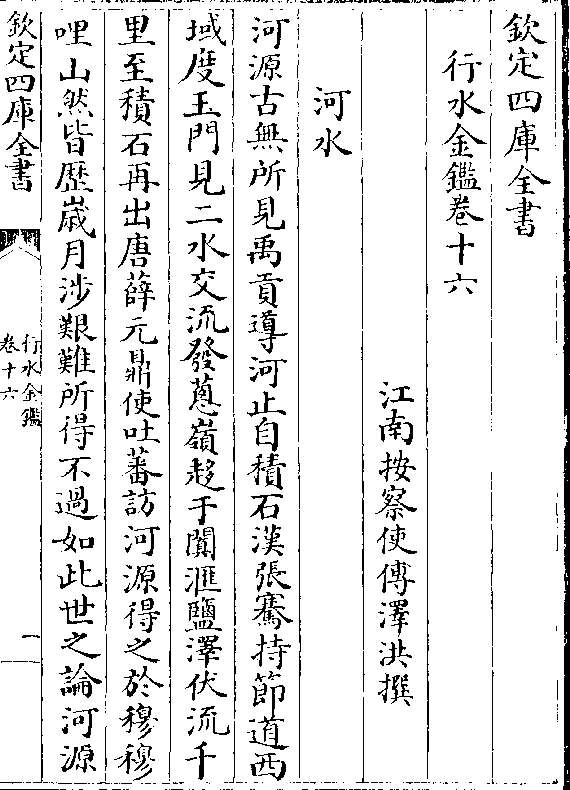 欽定四庫全書
行水金鑑卷十六
江南按察使傅澤洪撰
河水
河源古無所見禹貢導河止自積石漢張騫持節道西
域度玉門見二水交流發蔥嶺趍于闐滙鹽澤伏流千
里至積石再出唐薛元鼎使吐蕃訪河源得之於穆穆
哩山然皆歴嵗月涉艱難所得不過如此世之論河源
欽定四庫全書
行水金鑑
卷十六
一